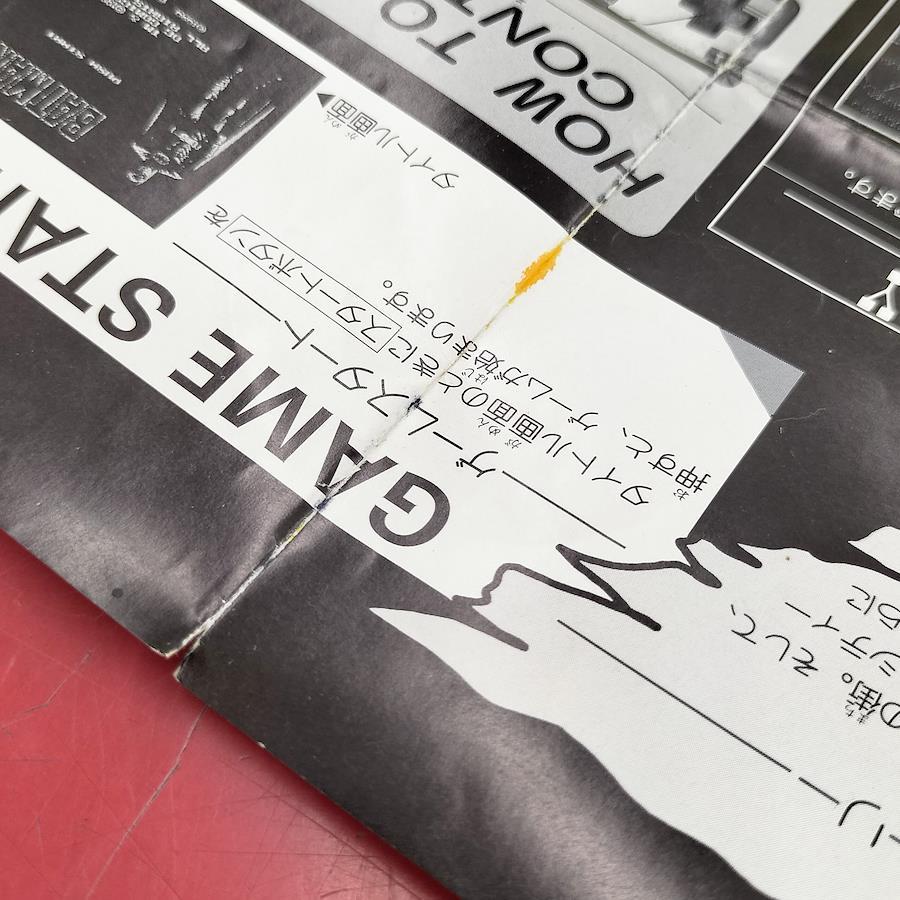 HOW TO
CON
GAME STA
ーゲームスタートー
タイトル画面のときにスタートボタンを
押すと、ゲームが始まります。
タイトル画面▶
BATMAN
ます。
Y
ーリー
の街。そして、
シティー